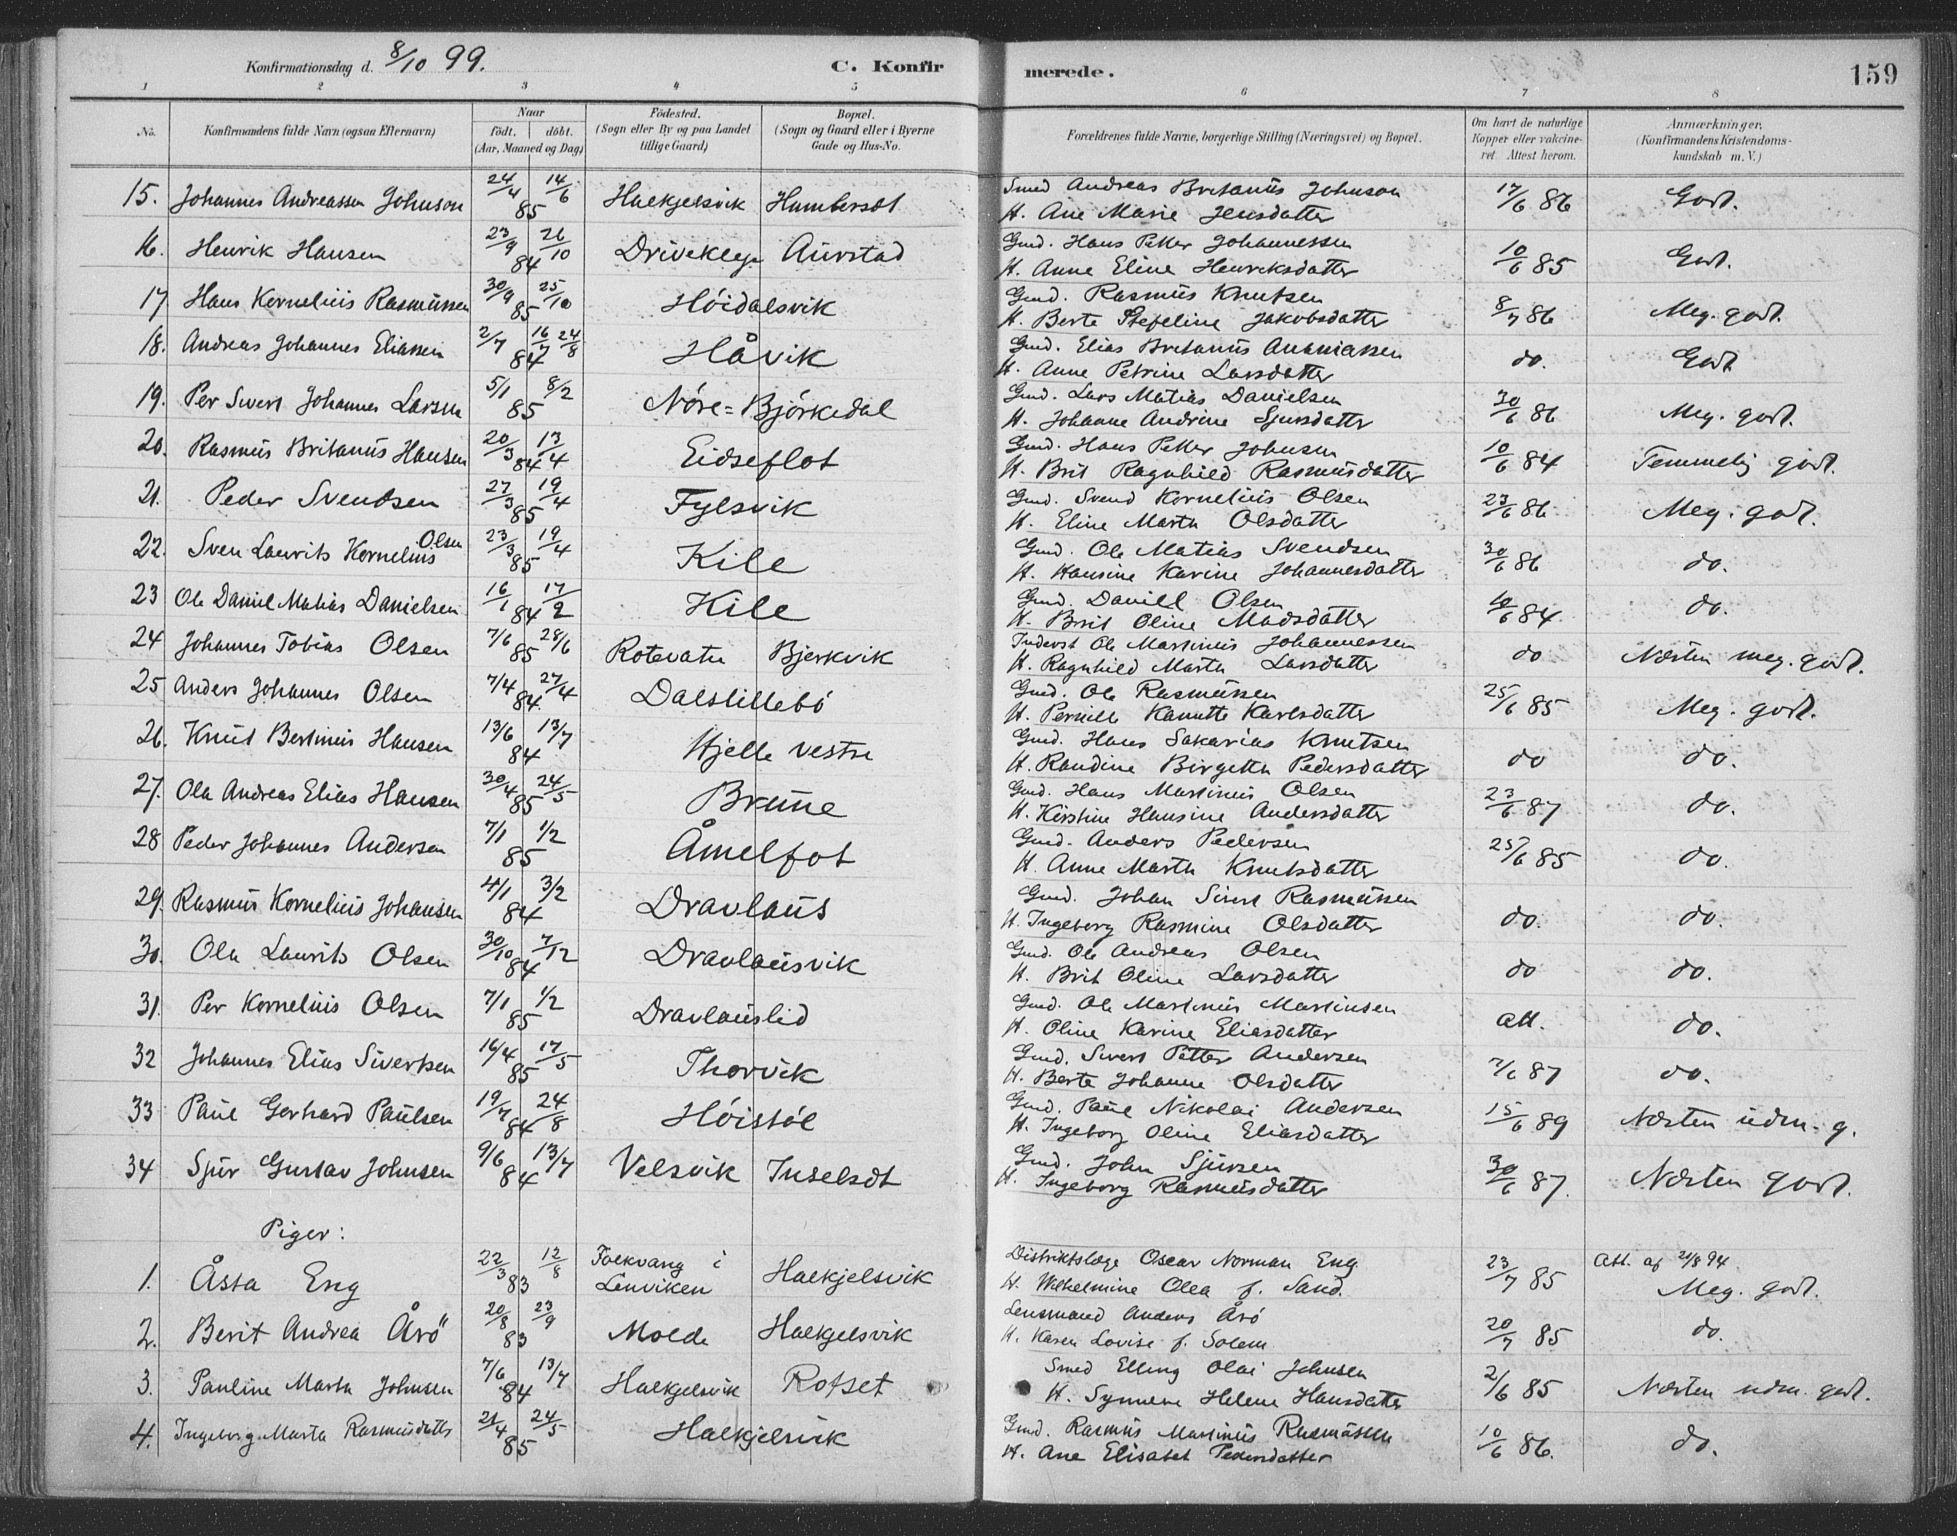 Konfirmationsdag d. 8/10 99.
C. Konfirmerede.
159
1 2 3 4 5 6 7 8
No.
Konfirmandens fulde Navn (ogsaa Efternavn)
Naar
født. døbt.
(Aar, Maaned og Dag)
Fødested.
(Sogn eller By og paa Landet
tillige Gaard)
Bopæl.
(Sogn og Gaard eller i Byerne
Gade og Hus-No.
Forældrenes fulde Navne, borgerlige Stilling (Næringsvei) og Bopæl.
Om havt de naturlige
Kopper eller vakcine-
ret. Attest herom.
Anmærkninger.
(Konfirmandens Kristendoms-
kundskab m. V.)
15. Johannes Andreassen Johnson 24/4 14/6 85 Halkjelsvik Humberset Smed Andreas Britanus Johnson 17/6 86 Godt.
H. Ane Marie Jensdatter
16. Henrik Hansen 23/9 26/10 84 Driveklep Aurstad Gmd. Hans Petter Johannessen 10/6 85 Godt.
H. Anne Eline Henriksdatter
17 Hans Kornelius Rasmussen 30/9 25/10 85 Høidalsvik Gmd. Rasmus Knutsen 8/7 86 Meg. godt.
H. Berte Stefeline Jakobsdatter
18. Andreas Johannes Eliassen 2/7 16/7 24/8 84 Håvik Gmd. Elias Britanus Ananiassen do. Godt
H. Anne Petrine Larsdatter
19. Per Sivert Johannes Larsen 5/1 8/2 85 Nøre=Bjørkedal Gmd. Lars Matias Danielsen 30/6 86 Meg. godt.
H. Johanne Andrine Sjursdatter
20. Rasmus Britanus Hansen 20/3 13/4 84 Eidseflot Gmd. Hans Petter Johnsen 10/6 84 Temmelig godt.
H. Brit Ragnhild Rasmusdatter
21. Peder Svendsen 27/3 19/4 85 Fylsvik Gmd. Svend Kornelius Olsen 23/6 86 Meg. godt.
H. Eline Marta Olsdatter
22. Sven Laurits Kornelius Olsen 23/3 19/4 85 Kile Gmd. Ole Matias Svendsen 30/6 86 do.
H. Hansine Karine Johannesdatter
23 Ole Daniel Matias Danielsen 16/1 17/2 84 Kile Gmd. Daniel Olsen 10/6 84 do.
H. Brit Oline Madsdatter
24 Johannes Tobias Olsen 7/6 28/6 85 Rotevatn Bjerkvik Inderst Ole Martinus Johannessen do Næsten meg. godt.
H. Ragnhild Marta Larsdatter
25 Anders Johannes Olsen 7/4 27/4 84 Dalslillebø Gmd. Ole Rasmussen 25/6 85 Meg. godt.
H. Pernille Kanutte Karlsdatter
26. Knut Bertinus Hansen 13/6 13/7 84 Hjelle vestre Gmd. Hans Sakarias Knutsen do do.
H. Randine Birgetta Pedersdatter
27. Ola Andreas Elias Hansen 30/4 24/5 85 Brune Gmd. Hans Martinus Olsen 23/6 87 do.
H. Kirstine Hansine Andersdatter
28 Peder Johannes Andersen 7/1 1/2 85 Åmelfot Gmd. Anders Pedersen 25/6 85 do.
H. Anne Marta Knutsdatter
29. Rasmus Kornelius Johansen 4/1 3/2 84 Dravlaus Gmd. Johan Sivert Rasmussen do. do.
H. Ingeborg Rasmine Olsdatter
30. Ola Laurits Olsen 30/10 7/12 84 Dravlausvik Gmd. Ole Andreas Olsen do do.
H. Brit Oline Larsdatter
31. Per Kornelius Olsen 7/1 1/2 85 Dravlauslid Gmd. Ole Martinus Martinsen att. do.
H. Oline Karine Eliasdatter
32 Johannes Elias Sivertsen 16/4 17/5 85 Thorvik Gmd. Sivert Petter Andersen 7/6 87 do.
H. Berte Johanne Olsdatter
33 Paul Gerhard Paulsen 19/7 24/8 84 Høistøl Gmd. Paul Nikolai Andersen 15/6 89 Næsten udm. g.
H. Ingeborg Oline Eliasdatter
34 Sjur Gustav Johnsen 9/6 13/7 84 Velsvik Inselset Gmd. John Sjursen 30/6 87. Næsten godt.
H. Ingeborg Rasmusdatter
Piger:
1. Åsta Eng 22/3 12/8 83 Folkvang i Lenviken Halkjelsvik Distriktslæge Oscar Norman Eng 23/7 85 Att. af 21/8 94.
H. Wilhelmine Olea f. Sand. Meg. godt.
2. Berit Andrea Årö 20/8 23/9 83 Molde Halkjelsvik Lensmand Anders Årö 20/7 85 do.
H. Karen Lovise f. Solem
3. Pauline Marta Johnsen 7/6 13/7 84 Halkjelsvik Rotset Smed Elling Olai Johnsen 2/6 85 Næsten udm. godt.
H. Synneve Helene Hansdatter
4. Ingeborg Marta Rasmusdatter 21/4 24/5 85 Halkjelsvik Gmd. Rasmus Martinus Rasmussen 10/6 86. do.
H. Ane Elisabet Pedersdatter